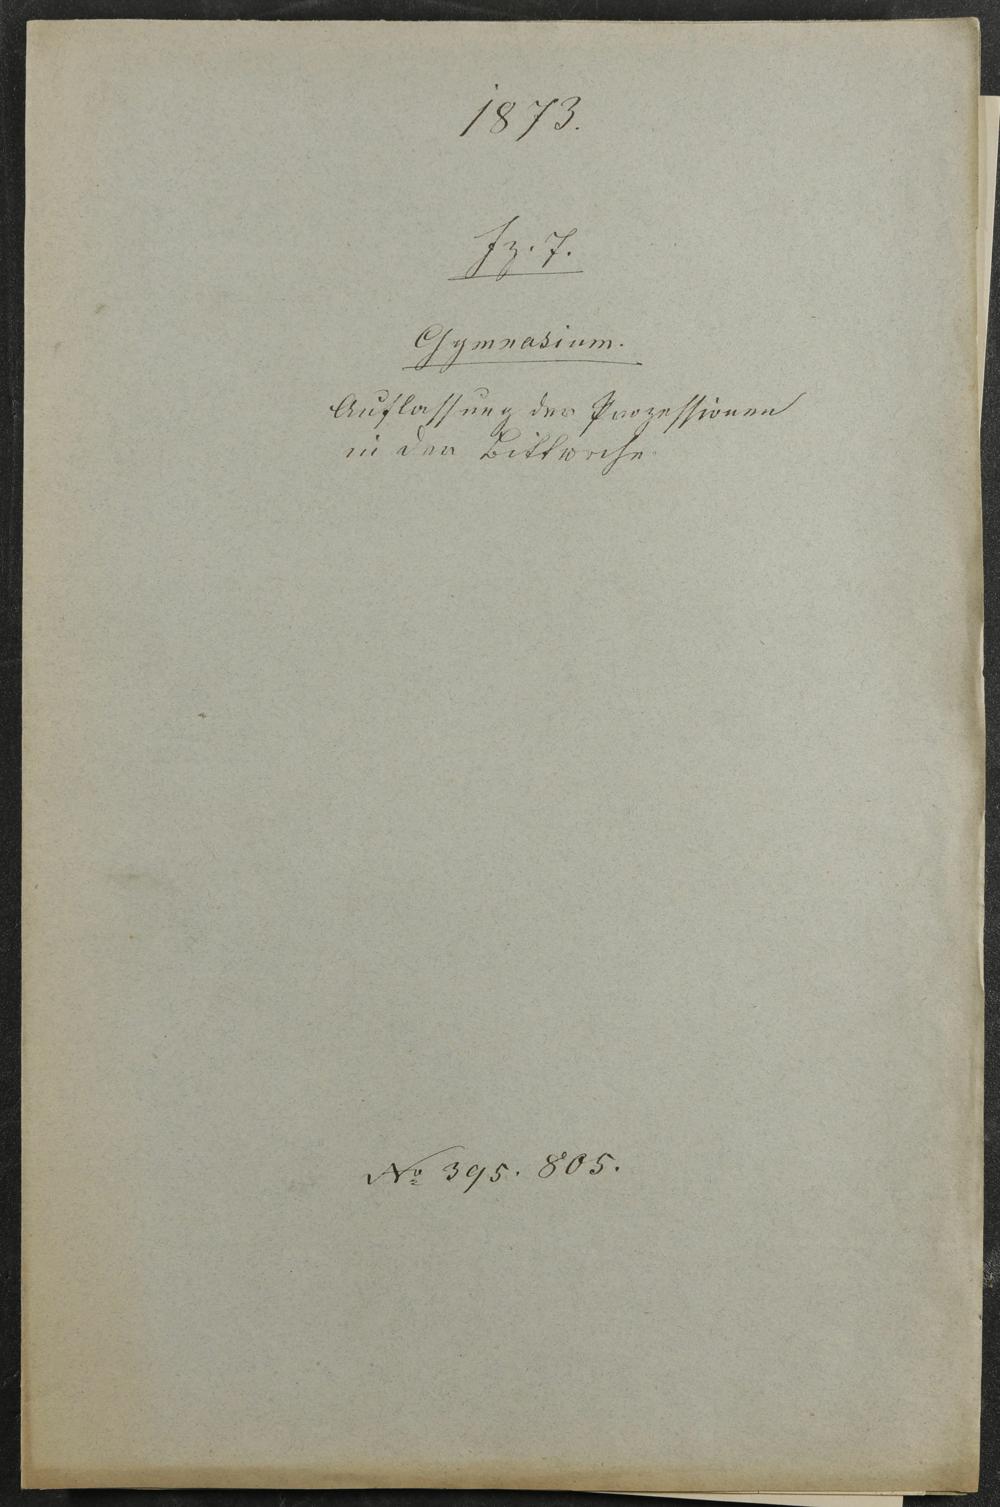 1873.
Fz. 7.
Gymnasium.
Auflassung der Prozessionen
in der Bittwoche.
No 395. 805.